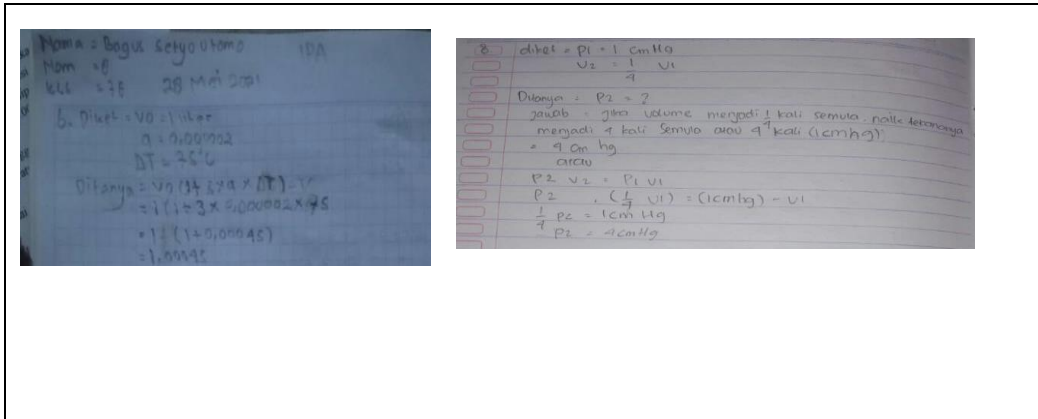 Nama = Bagus Setyo Utomo IPA
Nom = 8
kls = 78 28 Mei 2021
6. Diket = V0 = 1 liter
a = 0,000002
ΔT = 75°C
Ditanya = V0 (1+3×a×ΔT)
= 1(1+3×0,000002×75
= 1+(1+0,00045)
= 1,00045
8. diket = P1 = 1 cmHg
V2 = 1/4 V1
Ditanya = P2 = ?
jawab = jika volume menjadi 1/4 kali semula, tekananya
menjadi 4 kali semula atau 4 kali (1cmhg)
= 4 cm hg
atau
P2 V2 = P1 V1
P2 . (1/4 V1) = (1cmhg) - V1
1/4 P2 = 1cm Hg
P2 = 4cmHg